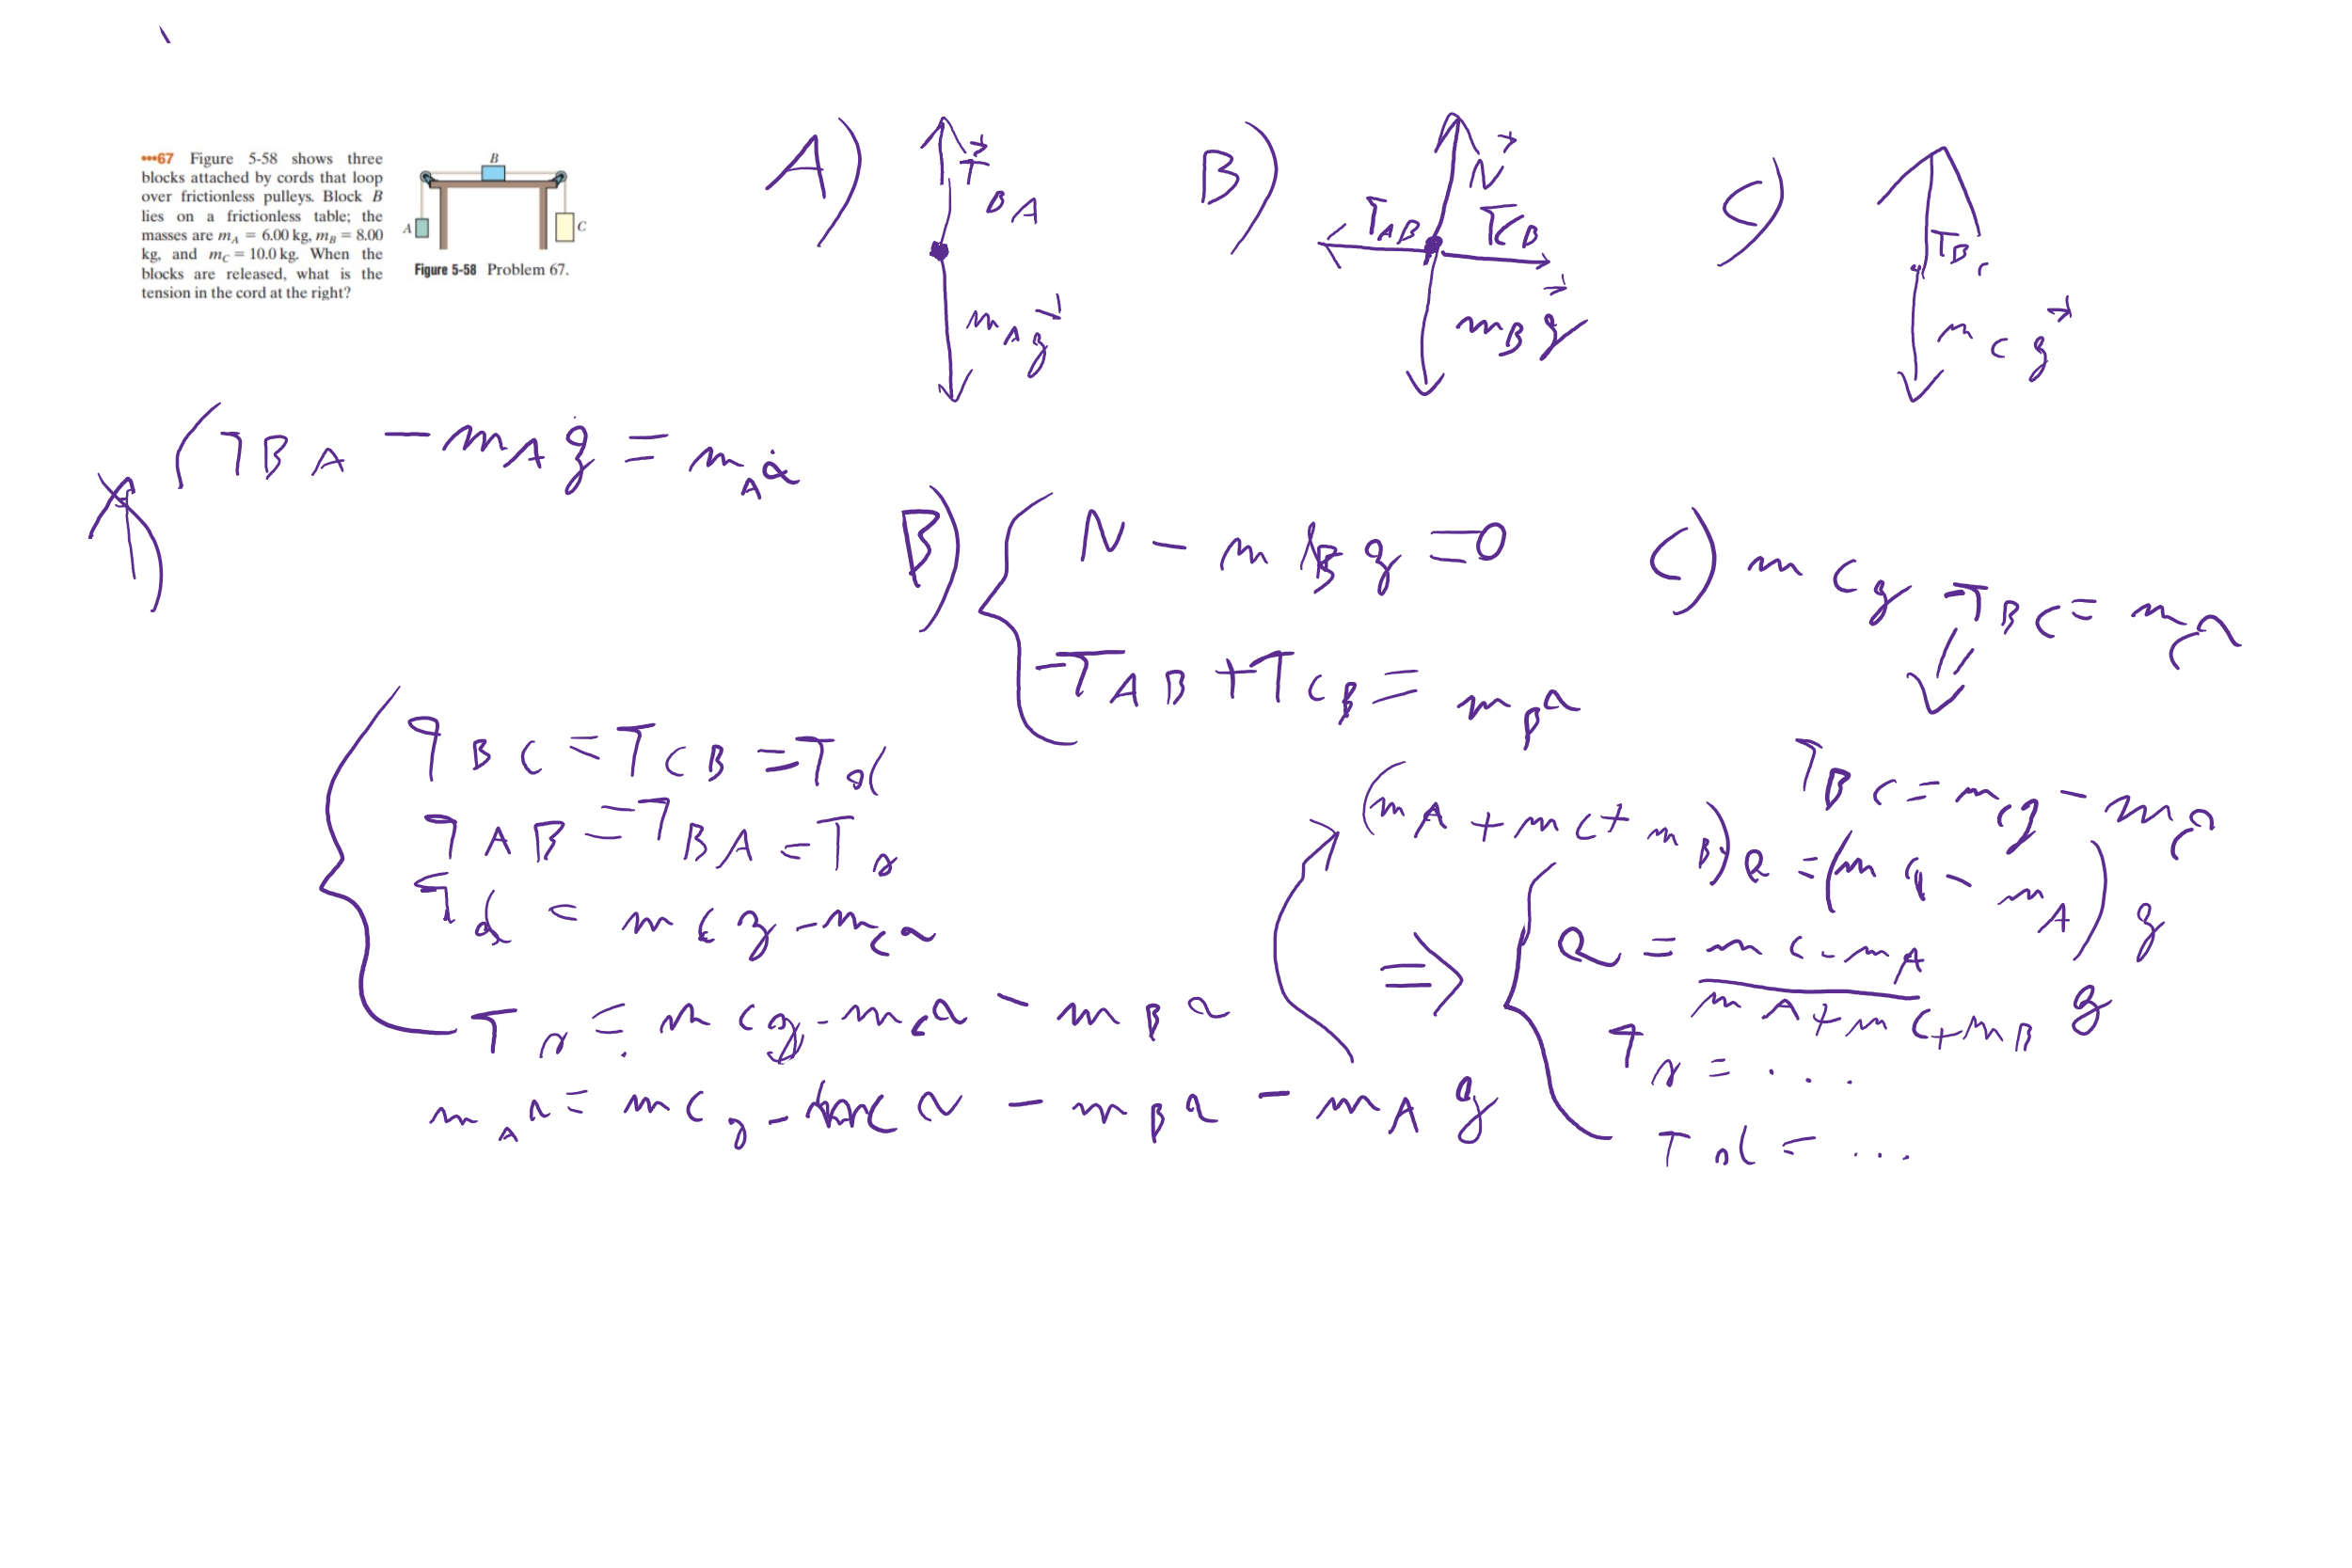 •••67 Figure 5-58 shows three
blocks attached by cords that loop
over frictionless pulleys. Block B
lies on a frictionless table; the
masses are m_A = 6.00 kg, m_B = 8.00
kg, and m_C = 10.0 kg. When the
blocks are released, what is the
tension in the cord at the right?
B
A
C
Figure 5-58 Problem 67.
A)
T⃗_BA
m_A g⃗
B)
N⃗
T_AB
T_CB
m_B g⃗
C)
T_BC
m_C g⃗
T_BA - m_A g = m_A a
B) { N - m_B g = 0
-T_AB + T_CB = m_B a
C) m_C g - T_BC = m_C a
⇓
T_BC = m_C g - m_C a
T_BC = T_CB = T_d
T_AB = T_BA = T_s
T_d = m_C g - m_C a
T_s = m_C g - m_C a - m_B a
m_A a = m_C g - m_C a - m_B a - m_A g
(m_A + m_C + m_B) a = (m_C - m_A) g
⇒ { a = (m_C - m_A) / (m_A + m_C + m_B) g
T_s = ....
T_d = ...